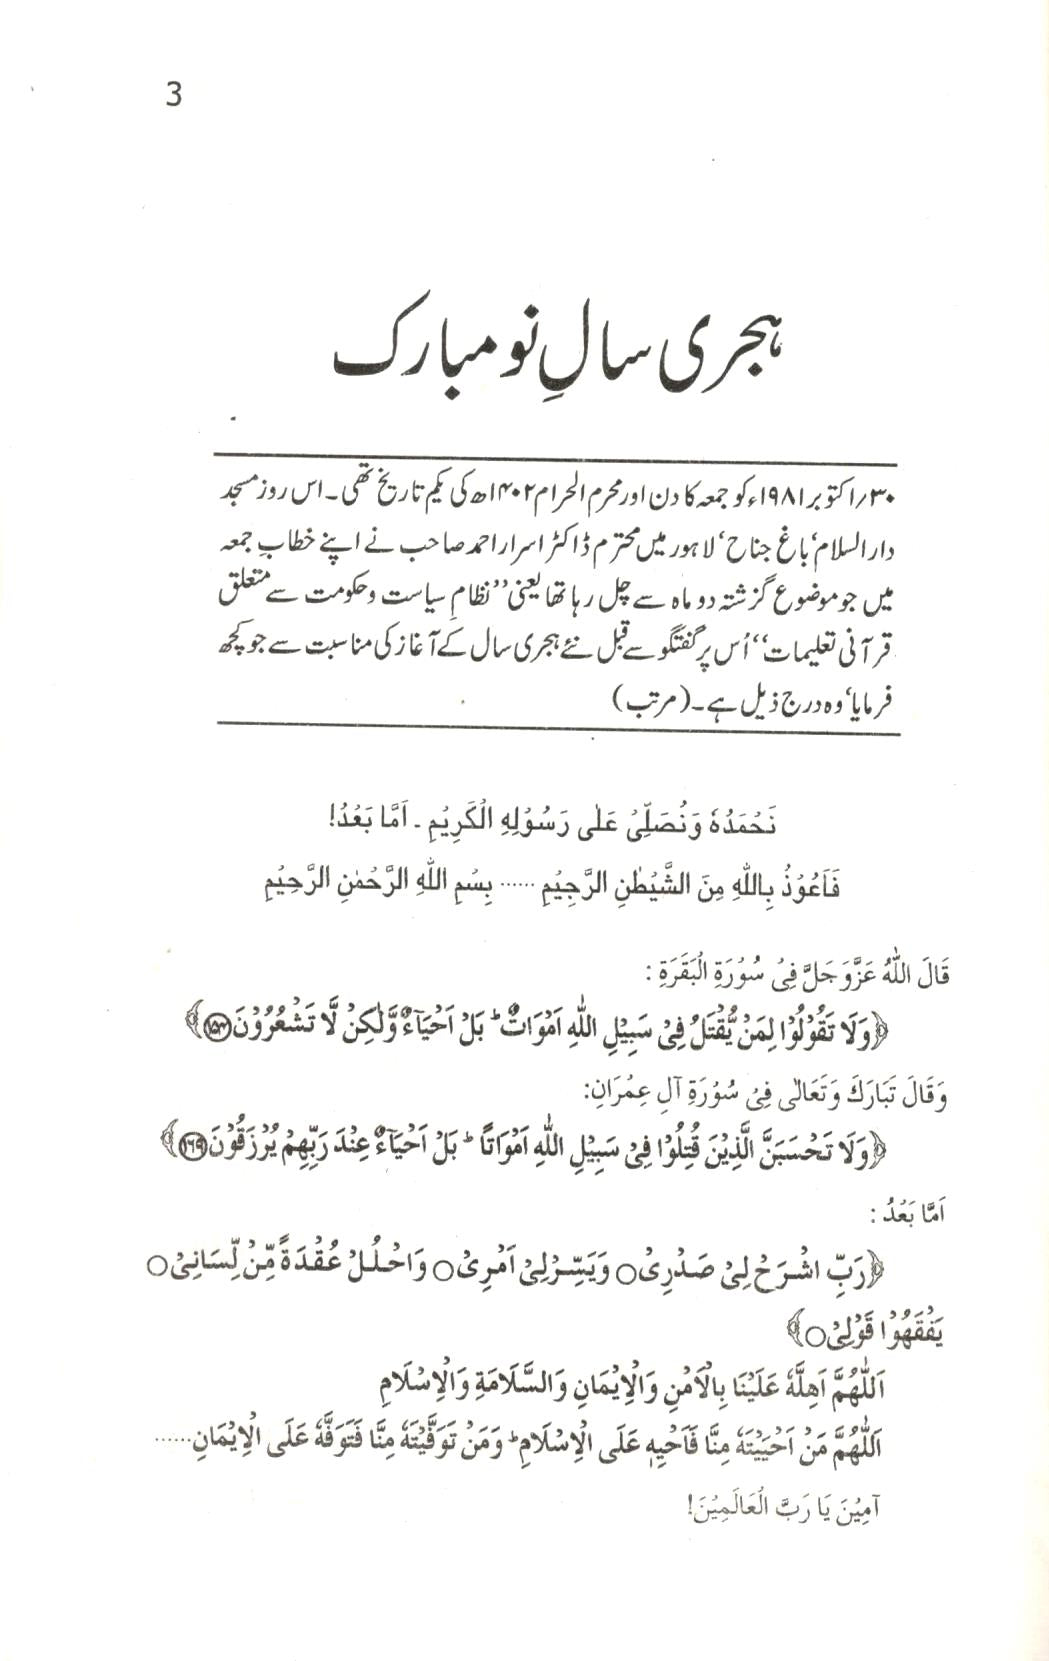 3
ہجری سالِ نو مبارک
۳۰/اکتوبر ۱۹۸۱ء کو جمعہ کا دن اور محرم الحرام ۱۴۰۲ھ کی یکم تاریخ تھی۔ اس روز مسجد
دارالسلام‘ باغ جناح‘ لاہور میں محترم ڈاکٹر اسرار احمد صاحب نے اپنے خطابِ جمعہ
میں جو موضوع گزشتہ دو ماہ سے چل رہا تھا یعنی ’’نظامِ سیاست و حکومت سے متعلق
قرآنی تعلیمات‘‘ اُس پر گفتگو سے قبل نئے ہجری سال کے آغاز کی مناسبت سے جو کچھ
فرمایا‘ وہ درج ذیل ہے۔ (مرتب)
نَحْمَدُہٗ وَنُصَلِّیْ عَلٰی رَسُوْلِہِ الْکَرِیْمِ ۔ اَمَّا بَعْدُ!
فَاَعُوْذُ بِاللّٰہِ مِنَ الشَّیْطٰنِ الرَّجِیْمِ ...... بِسْمِ اللّٰہِ الرَّحْمٰنِ الرَّحِیْمِ
قَالَ اللّٰہُ عَزَّوَجَلَّ فِیْ سُوْرَۃِ الْبَقَرَۃِ :
﴿وَلَا تَقُوْلُوْا لِمَنْ یُّقْتَلُ فِیْ سَبِیْلِ اللّٰہِ اَمْوَاتٌ ؕ بَلْ اَحْیَآءٌ وَّلٰکِنْ لَّا تَشْعُرُوْنَ ﴿۱۵۴﴾﴾
وَقَالَ تَبَارَکَ وَتَعَالٰی فِیْ سُوْرَۃِ آلِ عِمْرَانِ:
﴿وَلَا تَحْسَبَنَّ الَّذِیْنَ قُتِلُوْا فِیْ سَبِیْلِ اللّٰہِ اَمْوَاتًا ؕ بَلْ اَحْیَآءٌ عِنْدَ رَبِّہِمْ یُرْزَقُوْنَ ﴿۱۶۹﴾﴾
اَمَّا بَعْدُ :
﴿رَبِّ اشْرَحْ لِیْ صَدْرِیْ○ وَیَسِّرْلِیْ اَمْرِیْ○ وَاحْلُلْ عُقْدَۃً مِّنْ لِّسَانِیْ○
یَفْقَہُوْا قَوْلِیْ○﴾
اَللّٰھُمَّ اَھِلَّہٗ عَلَیْنَا بِالْاَمْنِ وَالْاِیْمَانِ وَالسَّلَامَۃِ وَالْاِسْلَامِ
اَللّٰھُمَّ مَنْ اَحْیَیْتَہٗ مِنَّا فَاَحْیِہٖ عَلَی الْاِسْلَامِ ؕ وَمَنْ تَوَفَّیْتَہٗ مِنَّا فَتَوَفَّہٗ عَلَی الْاِیْمَانِ......
آمِیْنَ یَا رَبَّ الْعَالَمِیْنَ!